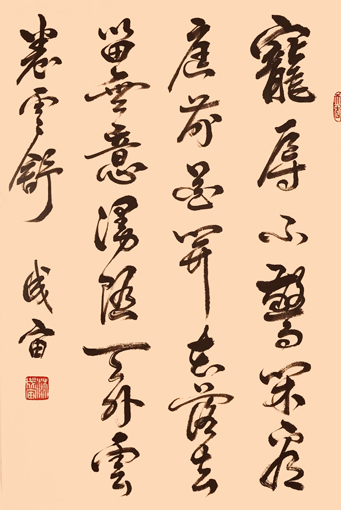 寵辱不驚閑看
庭前花開花落去
留無意漫隨天外雲
卷雲舒 成宙